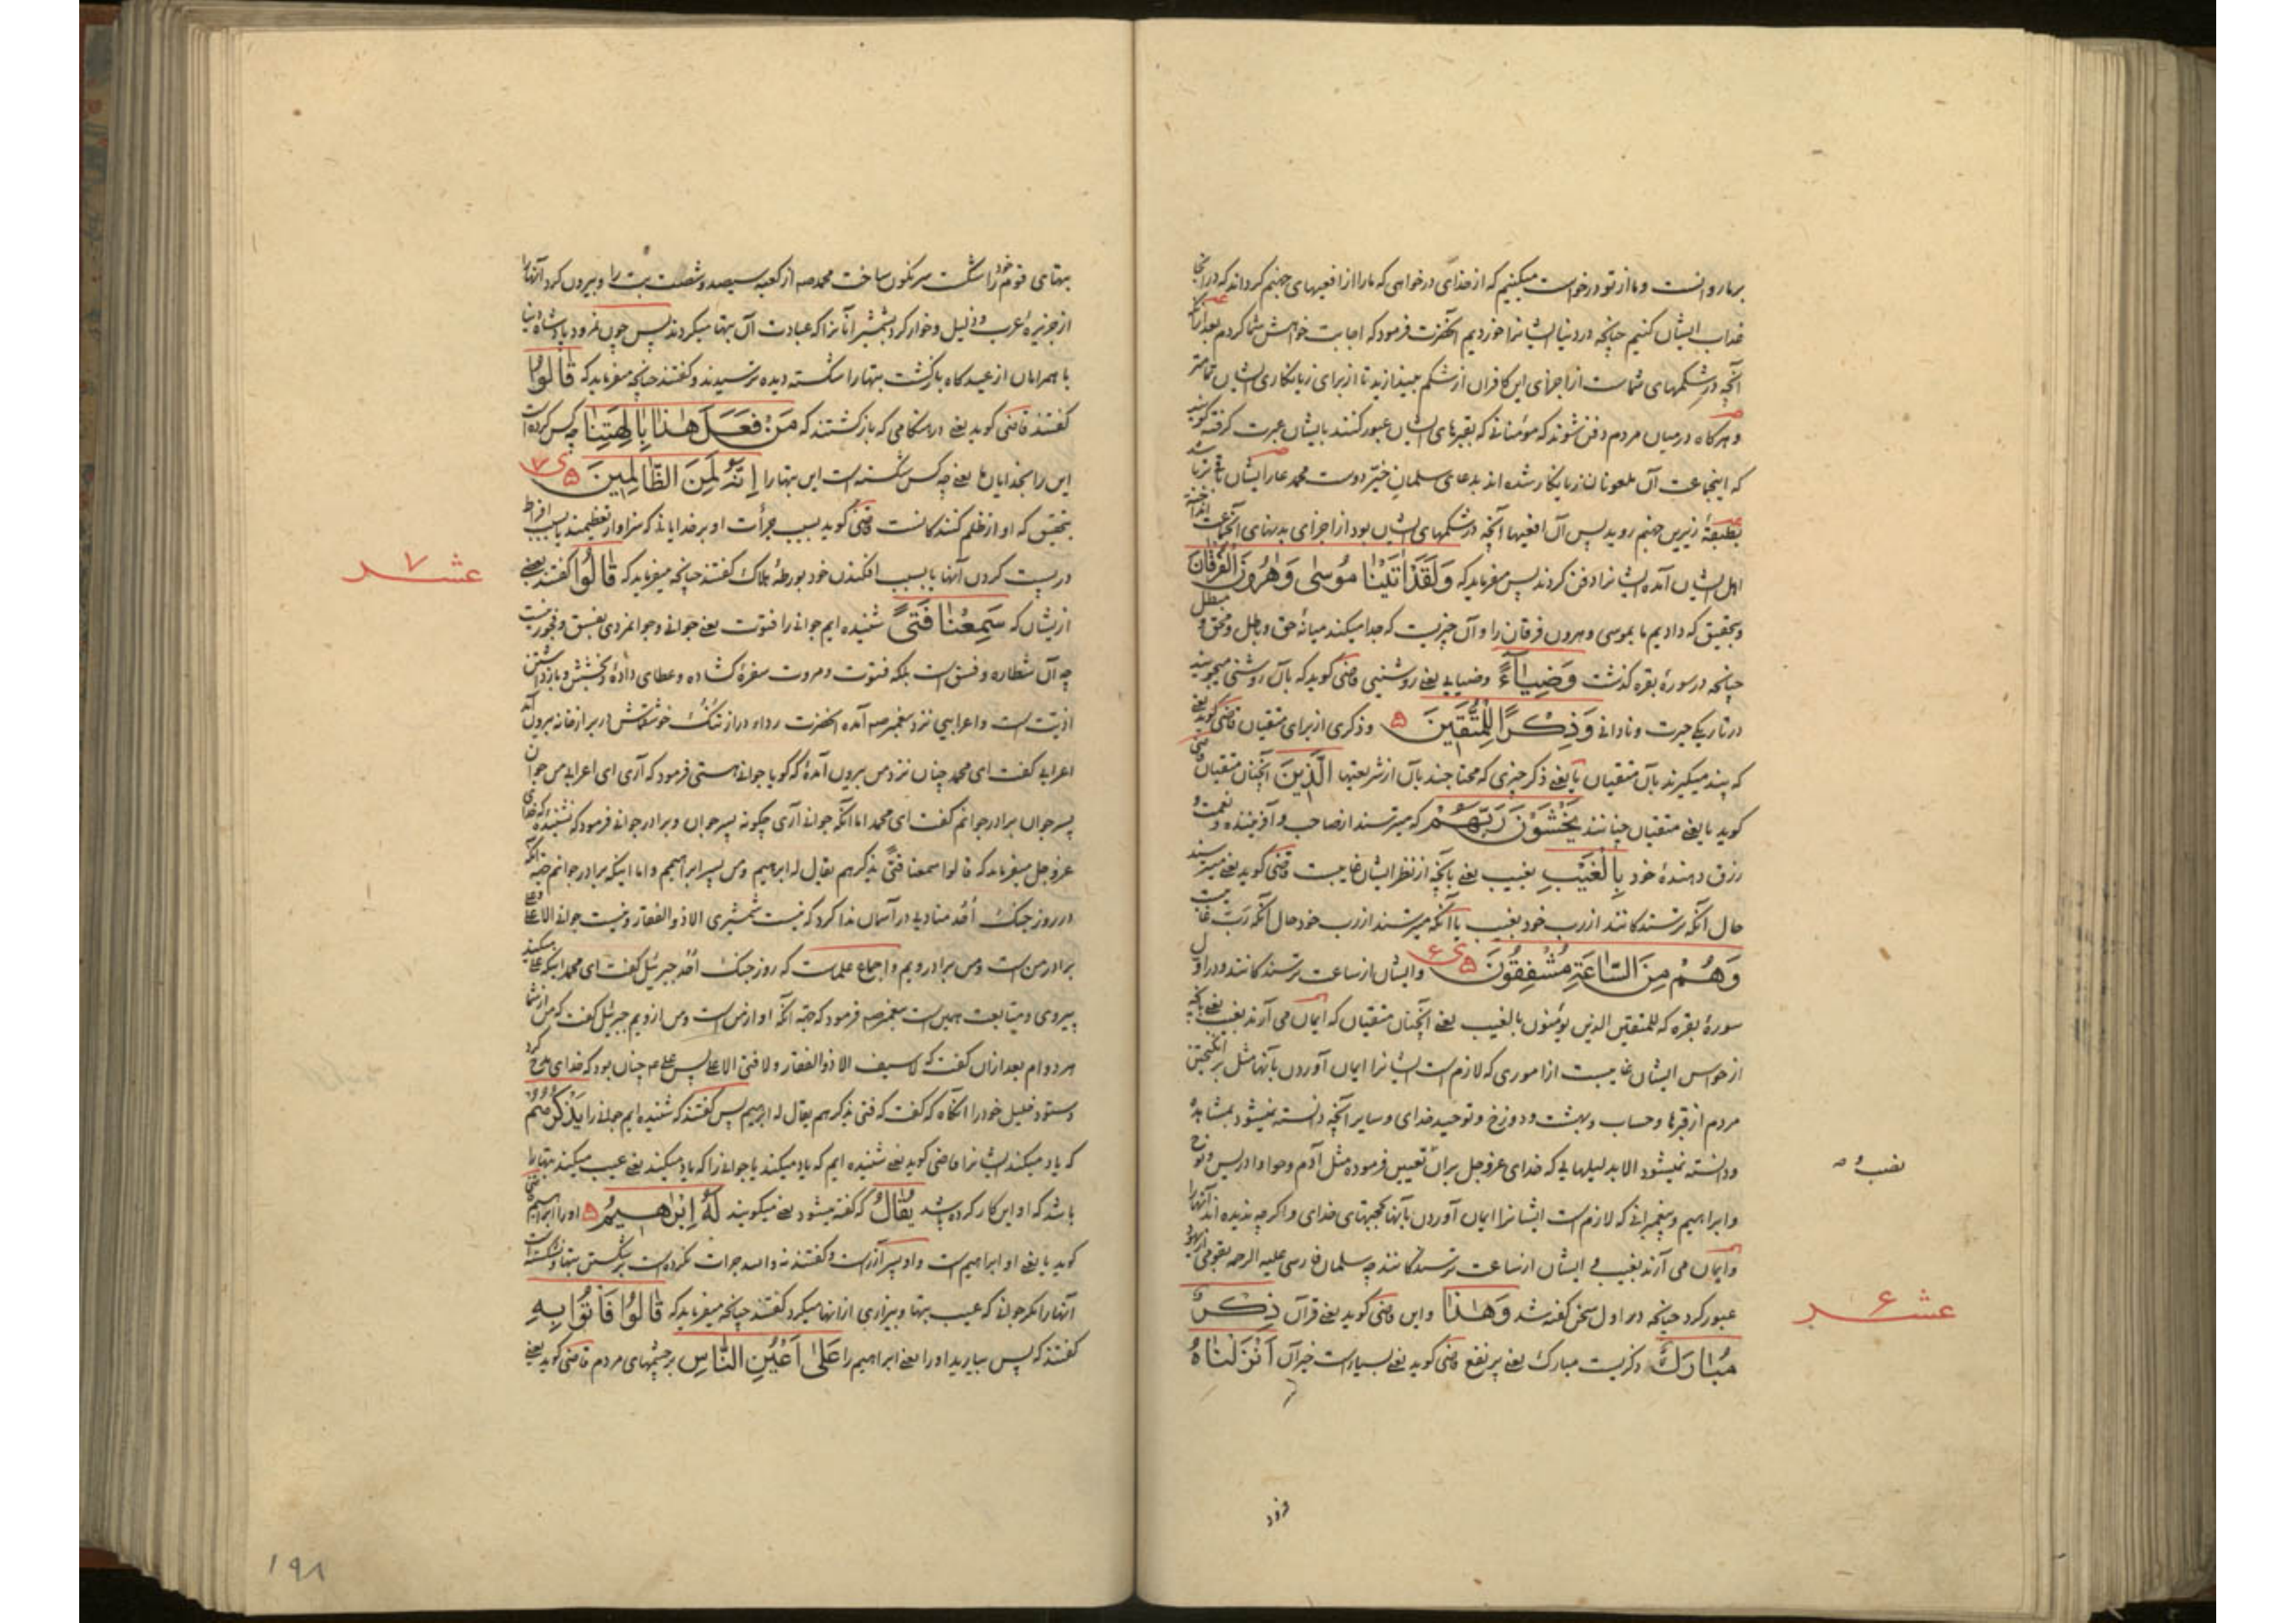 بر ما روانست و ما از تو درخواست میکنیم که از خدای درخواهی که ما را از افعیهای جهنم کرداند که در آنجا
عذاب ایشان کنیم چنانچه در دنیا ایشانرا خوردیم آنحضرت فرمود که اجابت خواهش شما کردم بعد از آنکه
آنچه در شکمهای شماست از اجزای این کافران از شکم بیندازید تا از برای زیانکاری ایشان تمامتر
و هرکاه در میان مردم دفن شوند که مؤمنانی که بقبرهای ایشان عبور کنند بایشان عبرت کرفته کویند
که اینجماعت آن ملعونانند زیانکار شده اند بدعای سلمان خیّر دوست محمد
بطبقهٔ زیرین جهنم روید پس آن افعیها آنچه در شکمهای ایشان بود از اجزای بدنهای آنجماعت انداخته
اهل ایشان آمده ایشانرا دفن کردند پس میفرماید که وَلَقَدْ اٰتَیْنٰا مُوسٰی وَهٰرُونَ الْفُرْقٰانَ
و بتحقیق که دادیم ما بموسی و هرون فرقان را و آن چیزیست که جدا میکند میانهٔ حق و باطل و محق و مبطل
چنانچه در سورهٔ بقره کذشت وَضِیٰاۤءً وضیایی یعنی روشنیی قاضی کوید که بآن روشنی میجویند
در تاریکی حیرت و نادانی وَذِکْرًا لِلْمُتَّقِینَ و ذکری از برای متقیان قاضی کوید یعنی
که پند میکیرند بآن متقیان یا یعنی ذکر چیزی که محتاجند بآن از شریعتها الَّذِینَ آنچنان متقیان قاضی
کوید یا یعنی متقیان چنانند یَخْشَوْنَ رَبَّهُمْ که میترسند از صاحب و آفریننده و نعمت و
رزق دهندهٔ خود بِالْغَیْبِ بغیب یعنی بآنچه از نظر ایشان غایبست قاضی کوید یعنی میترسند
حال آنکه ترسندکانند از رب خود بغیب یا آنکه میترسند از رب خود حال آنکه ربّ غایبست
وَهُمْ مِنَ السّٰاعَةِ مُشْفِقُونَ ی ۶ و ایشان از ساعت ترسندکانند و در اول
سورهٔ بقره که للمتقین الذین یؤمنون بالغیب یعنی آنچنان متقیان که ایمان می آرند بغیب یعنی بآنچه
از حواس ایشان غایبست از اموری که لازمست ایشانرا ایمان آوردن بآنها مثل برانکیختن
مردم از قبرها و حساب و بهشت و دوزخ و توحید خدای و سایر آنچه دانسته نمیشود بمشاهده
و دانسته نمیشود الا بدلیلهایی که خدای عزوجل بر آن تعیین فرموده مثل آدم و حوا و ادریس و نوح
و ابراهیم و پیغمبرانی که لازمست ایشانرا ایمان آوردن بآنها بحجتهای خدای و اکر چه ندیده اند آنها را
و ایمان می آرند بغیب و ایشان از ساعت ترسندکانند چه سلمان فارسی علیه الرحمه بقومی از یهود
عبور کرد چنانچه در اول سخن کفته شد وَهٰذٰا و این قاضی کوید یعنی قرآن ذِکْرٌ
مُبٰارَكٌ ذکریست مبارك یعنی پر نفع قاضی کوید یعنی بسیارست خیر آن اَنْزَلْنٰاهُ
عشر ۶
بتهای قوم خود را شکست سرنکون ساخت محمد صه از کعبه سیصد و شصت بت را و بیرون کرد آنها را
از جزیرهٔ عرب و ذلیل و خوار کرد بشمشیر آنانرا که عبادت آن بتها میکردند پس چون نمرود پادشاه دنیا
با همراهان از عیدکاه بازکشت بتها را شکسته دیده ترسیدند و کفتند چنانچه میفرماید که قٰالُوا
کفتند قاضی کوید یعنی در هنکامی که بازکشتند که مَنْ فَعَلَ هٰذٰا بِاٰلِهَتِنٰا چه کس کرده است
این را بخدایان ما یعنی چه کس شکسته است این بتها را اِنَّهُ لَمِنَ الظّٰالِمِینَ ی ۷
بتحقیق که او از ظلم کنندکانست قاضی کوید بسبب جرأت او بر خدایانی که سزاوار تعظیمند یا بسبب افراط
در پست کردن آنها یا بسبب افکندن خود بورطهٔ هلاك کفتند چنانچه میفرماید که قٰالُوا کفتند بعضی
ازیشان که سَمِعْنٰا فَتًی شنیده ایم جوانی را فتوت یعنی جوانی و جوانمردی بفسق و فجور نیست
چه آن شطاره و فسق است بلکه فتوت و مروت سفرهٔ کشاده و عطای داده و بخشش و بازداشتن
اذیّت است و اعرابیی نزد پیغمبر صه آمده آنحضرت رداء دراز تنك خوشقماش در بر از خانه بیرون آمد
اعرابی کفت ای محمد چنان نزد من بیرون آمدهٔ که کویا جوانی هستی فرمود که آری ای اعرابی من جوان
پسر جوان برادر جوانم کفت ای محمد اما آنکه جوانی آری چکونه پسر جوان و برادر جوانی فرمود که نشنیدهٔ که خدای
عزوجل میفرماید که قالوا سمعنا فتًی یذکرهم یقال له ابراهیم و من پسر ابراهیمم و اما اینکه برادر جوانم جهة آنکه
در روز جنك اُحُد منادیی در آسمان ندا کرد که نیست شمشیری الا ذوالفقار و نیست جوانی الا علی و علی
برادر منست و من برادر ویم و اجماع علماست که روز جنك اُحُد جبرئیل کفت ای محمد اینکه علی میکند
پیروی و متابعت همین است پیغمبر صه فرمود که جهة آنکه او از منست و من از ویم جبرئیل کفت که من از شما
هر دو ام بعد از آن کفت که لا سیف الا ذوالفقار و لا فتی الا علی پس علی م چنان بود که خدای مدح کرد
و ستود خلیل خود را آنکاه که کفت که فتی یذکرهم یقال له ابراهیم پس کفتند که شنیده ایم جوانی را یَذْکُرُهُمْ
که یاد میکند ایشانرا قاضی کوید یعنی شنیده ایم که یاد میکند یا جوانی را که یاد میکند یعنی عیب میکند بتها را
باشد که او این کار کرده باشد یُقٰالُ که کفته میشود یعنی میکویند لَهُ اِبْرٰاهِیمُ او را ابراهیم قاضی
کوید یا یعنی او ابراهیم است و او پسر آزرست و کفتند نه والله جرات نکرده است بر شکستن بتها و نشکسته است
آنها را مکر جوانی که عیب بتها و بیزاری از آنها میکرد کفتند چنانچه میفرماید که قٰالُوا فَأْتُوا بِهِ
کفتند که پس بیارید او را یعنی ابراهیم را عَلیٰ اَعْیُنِ النّٰاسِ بر چشمهای مردم قاضی کوید یعنی
عشر ۷
۱۹۸